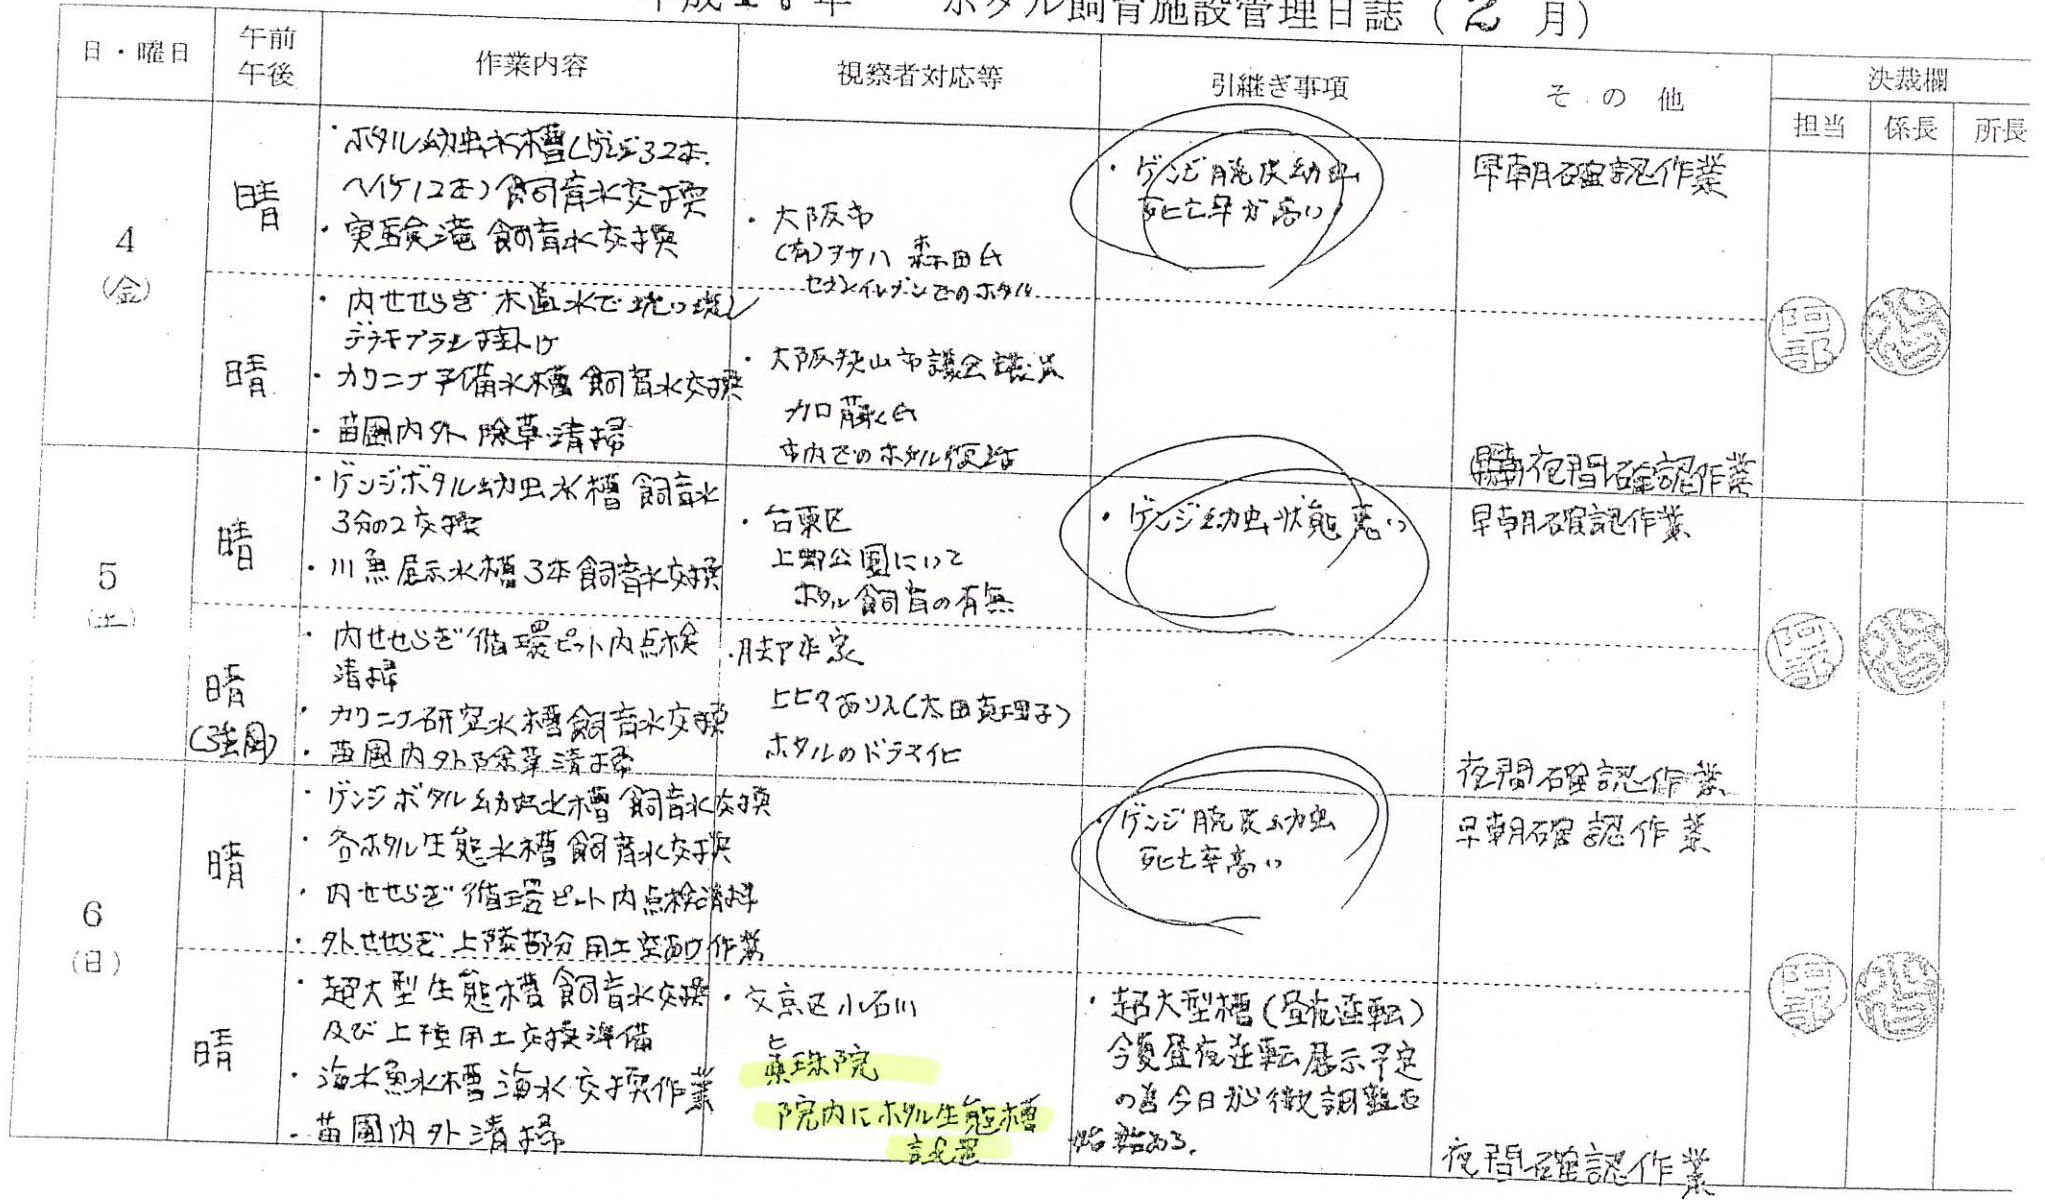 ホタル飼育施設管理日誌（2月）
日・曜日
午前
午後
作業内容
視察者対応等
引継ぎ事項
その他
決裁欄
担当
係長
所長
4
（金）
晴
・ホタル幼虫水槽(ゲンジ32本、
ヘイケ12本)飼育水交換
・実験滝 飼育水交換
・大阪市
森田氏
セブンイレブンでのホタル
・ゲンジ脱皮幼虫
死亡率が高い
早朝確認作業
晴
・内せせらぎ 水道水で
・カワニナ予備水槽 飼育水交換
・苗圃内外 除草清掃
・大阪狭山市議会議員
加藤氏
市内でのホタル復活
夜間確認作業
5
（土）
晴
・ゲンジボタル幼虫水槽 飼育水
3分の2交換
・川魚展示水槽3本飼育水交換
・台東区
上野公園にいて
ホタル飼育の有無
・ゲンジ幼虫状態悪い
早朝確認作業
晴
(強風)
・内せせらぎ循環ピット内点検
清掃
・カワニナ研究水槽飼育水交換
・苗圃内外除草清掃
・脚本家
(太田真理子)
ホタルのドラマ化
夜間確認作業
6
（日）
晴
・ゲンジボタル幼虫水槽 飼育水交換
・各ホタル生態水槽 飼育水交換
・内せせらぎ循環ピット内点検清掃
・外せせらぎ上陸部分用土空あけ作業
・ゲンジ脱皮幼虫
死亡率高い
早朝確認作業
晴
・超大型生態槽飼育水交換
及び上陸用土交換準備
・海水魚水槽 海水交換作業
・苗圃内外清掃
・文京区小石川
眞珠院
院内にホタル生態槽
設置
・超大型槽(昼夜逆転)
今夏昼夜逆転展示予定
の為今日から微調整を
始める。
夜間確認作業
阿部
阿部
阿部